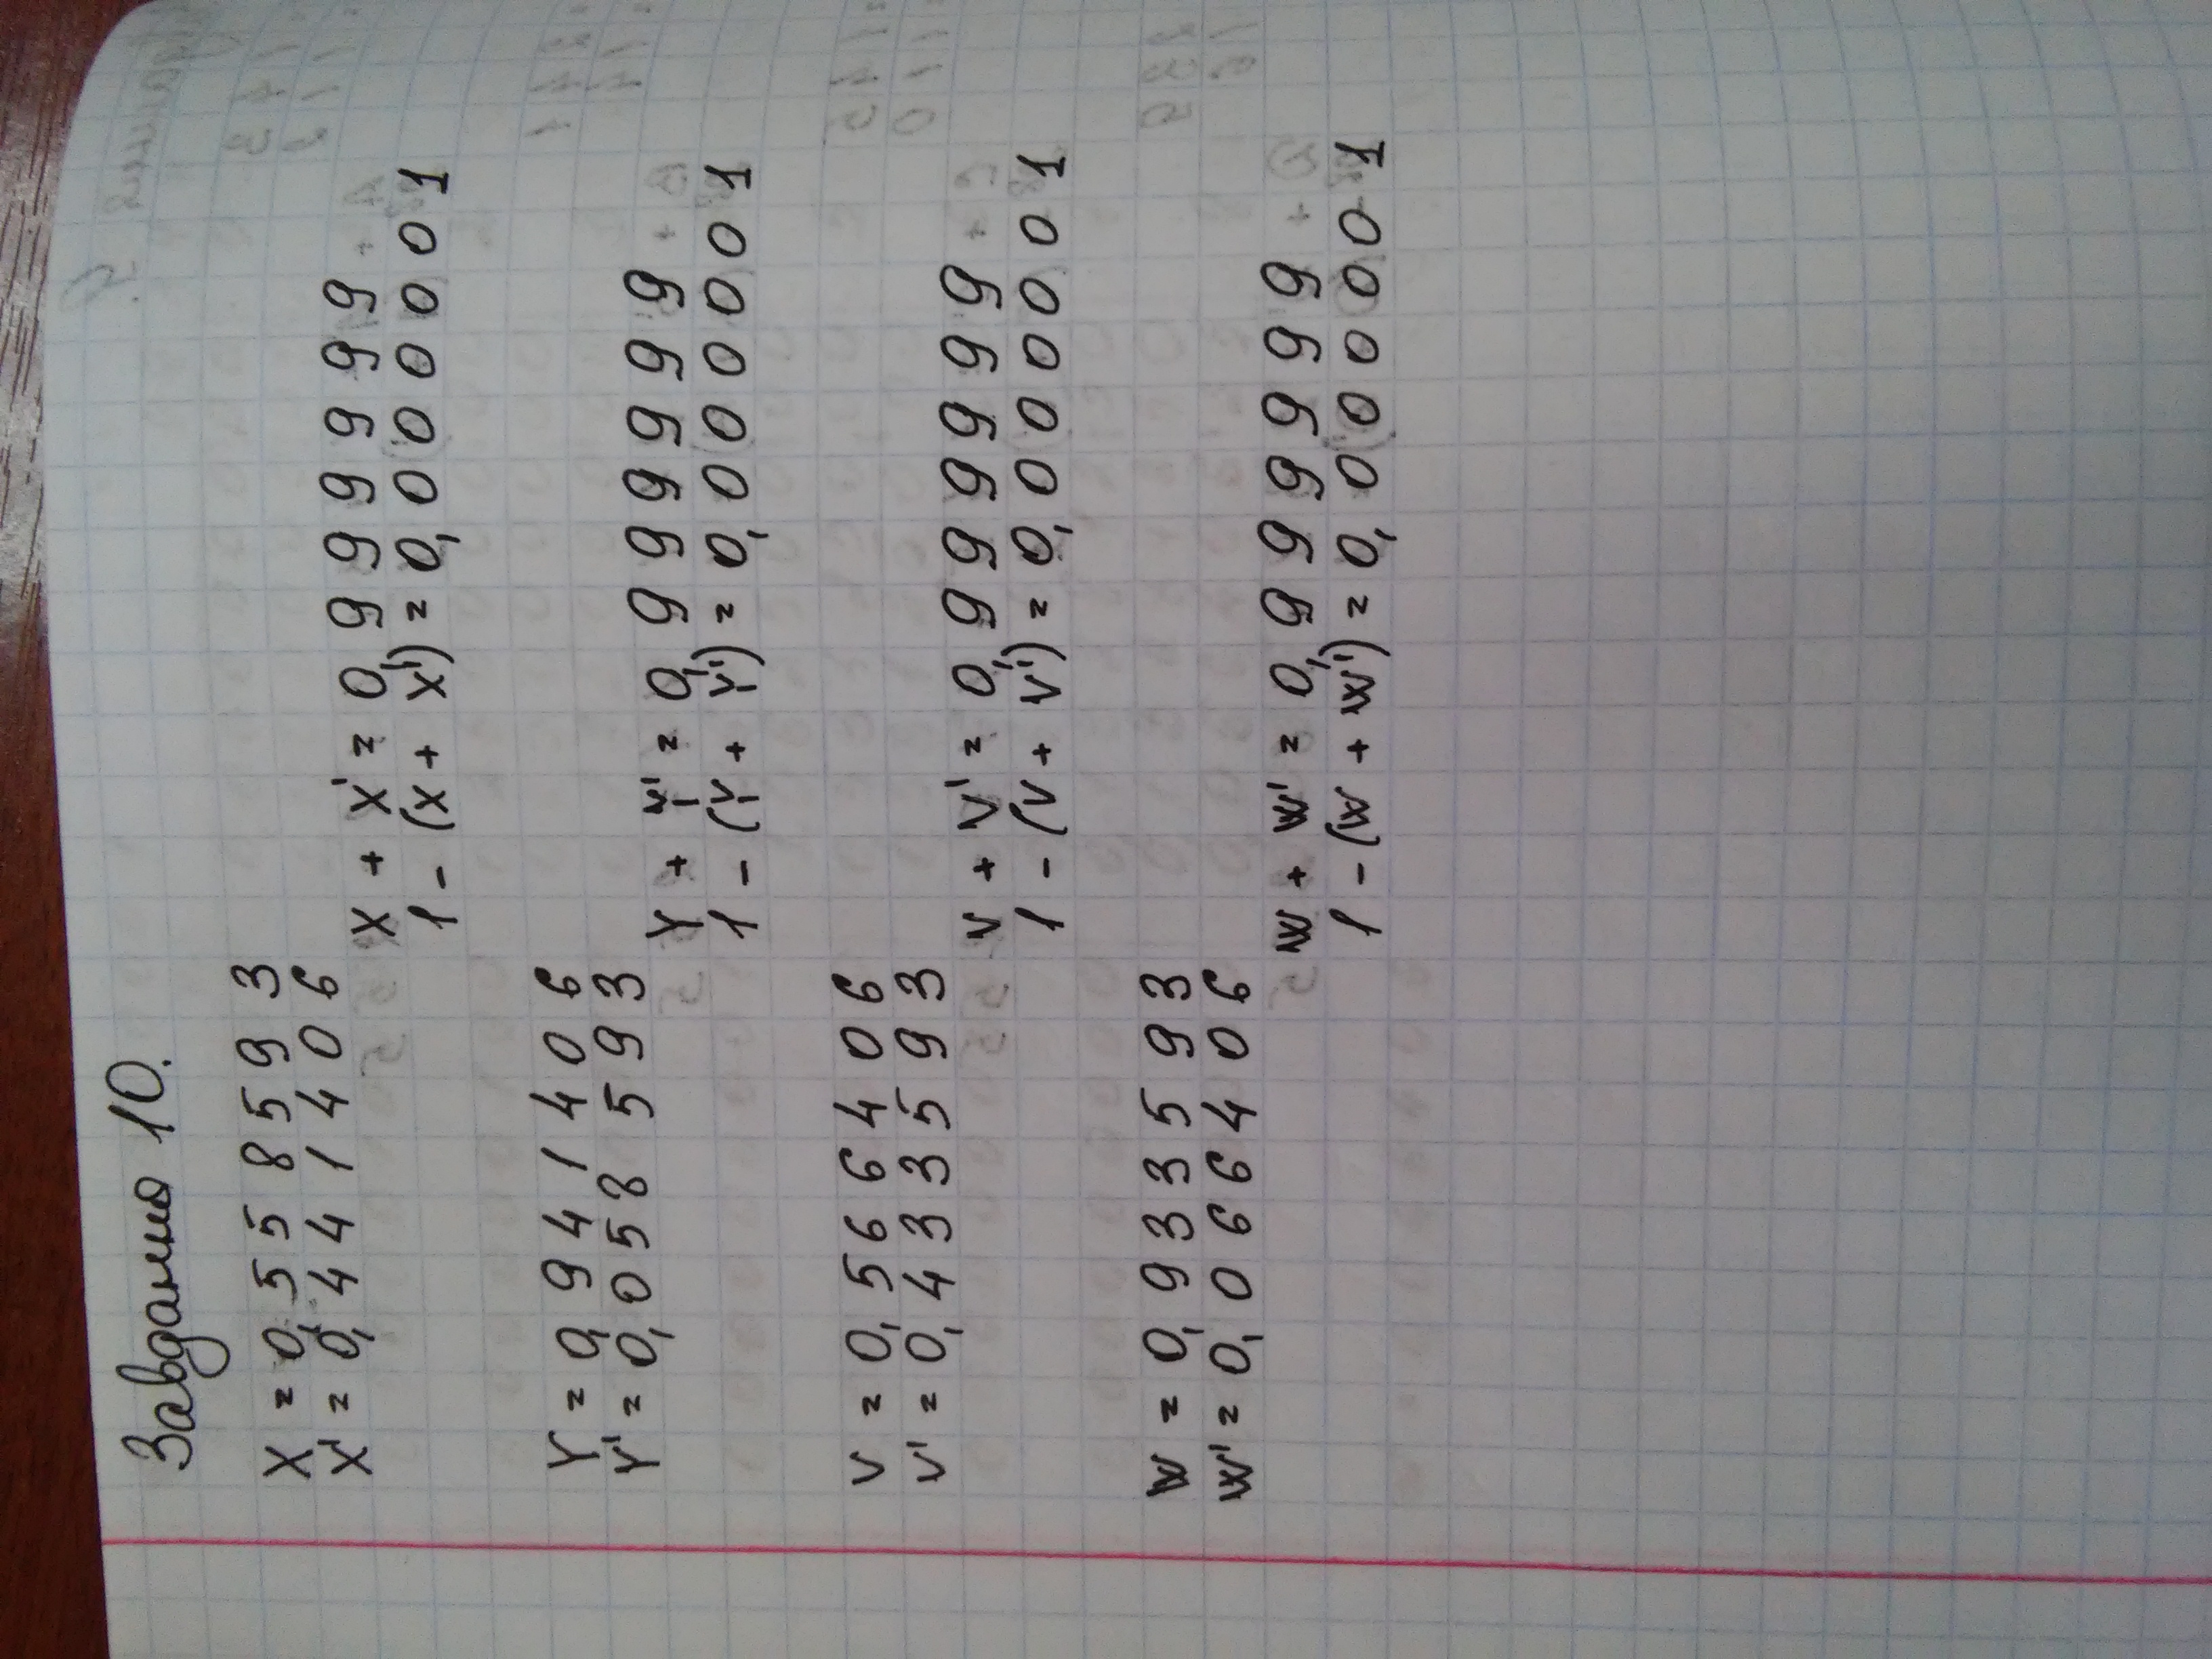 Завдання 10.
X = 0,558593
X' = 0,441406
X + X' = 0,999999
1 - (X + X') = 0,000001
Y = 0,941406
Y' = 0,058593
Y + Y' = 0,999999
1 - (Y + Y') = 0,000001
V = 0,566406
V' = 0,433593
V + V' = 0,999999
1 - (V + V') = 0,000001
W = 0,933593
W' = 0,066406
W + W' = 0,999999
1 - (W + W') = 0,000001